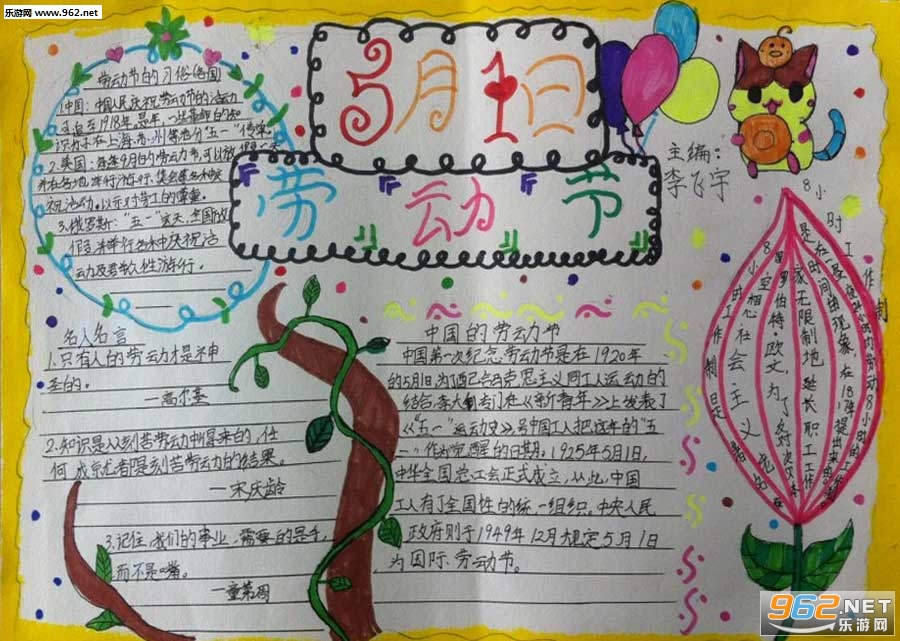 乐游网 www.962.net
5月1日
劳动节
主编：
李飞宇
劳动节的习俗(各国)
1.中国：中国人民庆祝劳动节的活动
2.美国：每年9月的劳动节，可以放假一天
祝活动，以示对劳工的尊重。
3.俄罗斯："五一"这天，全国放
假，并举行各种庆祝活
动及君众性游行。
名人名言
1.只有人的劳动才是神
圣的。
一高尔基
2.知识是从刻苦劳动中得来的，任
何成就尤者是刻苦劳动的结果。
一宋庆龄
3.记住，我们的事业，需要的是手，
而不是嘴。
一童第周
中国的劳动节
中国第一次纪念劳动节是在1920年
的5月1日，为了配合马克思主义同工人运动的
结合，李大钊专门在《新青年》上发表了
《"五一"运动史》，号召中国工人把这年的"五
一"作为觉醒的日期。1925年5月1日，
中华全国总工会正式成立，从此，中国
工人有了全国性的统一组织。中央人民
政府则于1949年12月规定5月1日
为国际劳动节。
8小时工作制
8小时工作制是
空想社会主义者
罗伯特·欧文，为了反对资本
家无限制地延长职工工作
时间的现象，在18
962.NET
乐游网